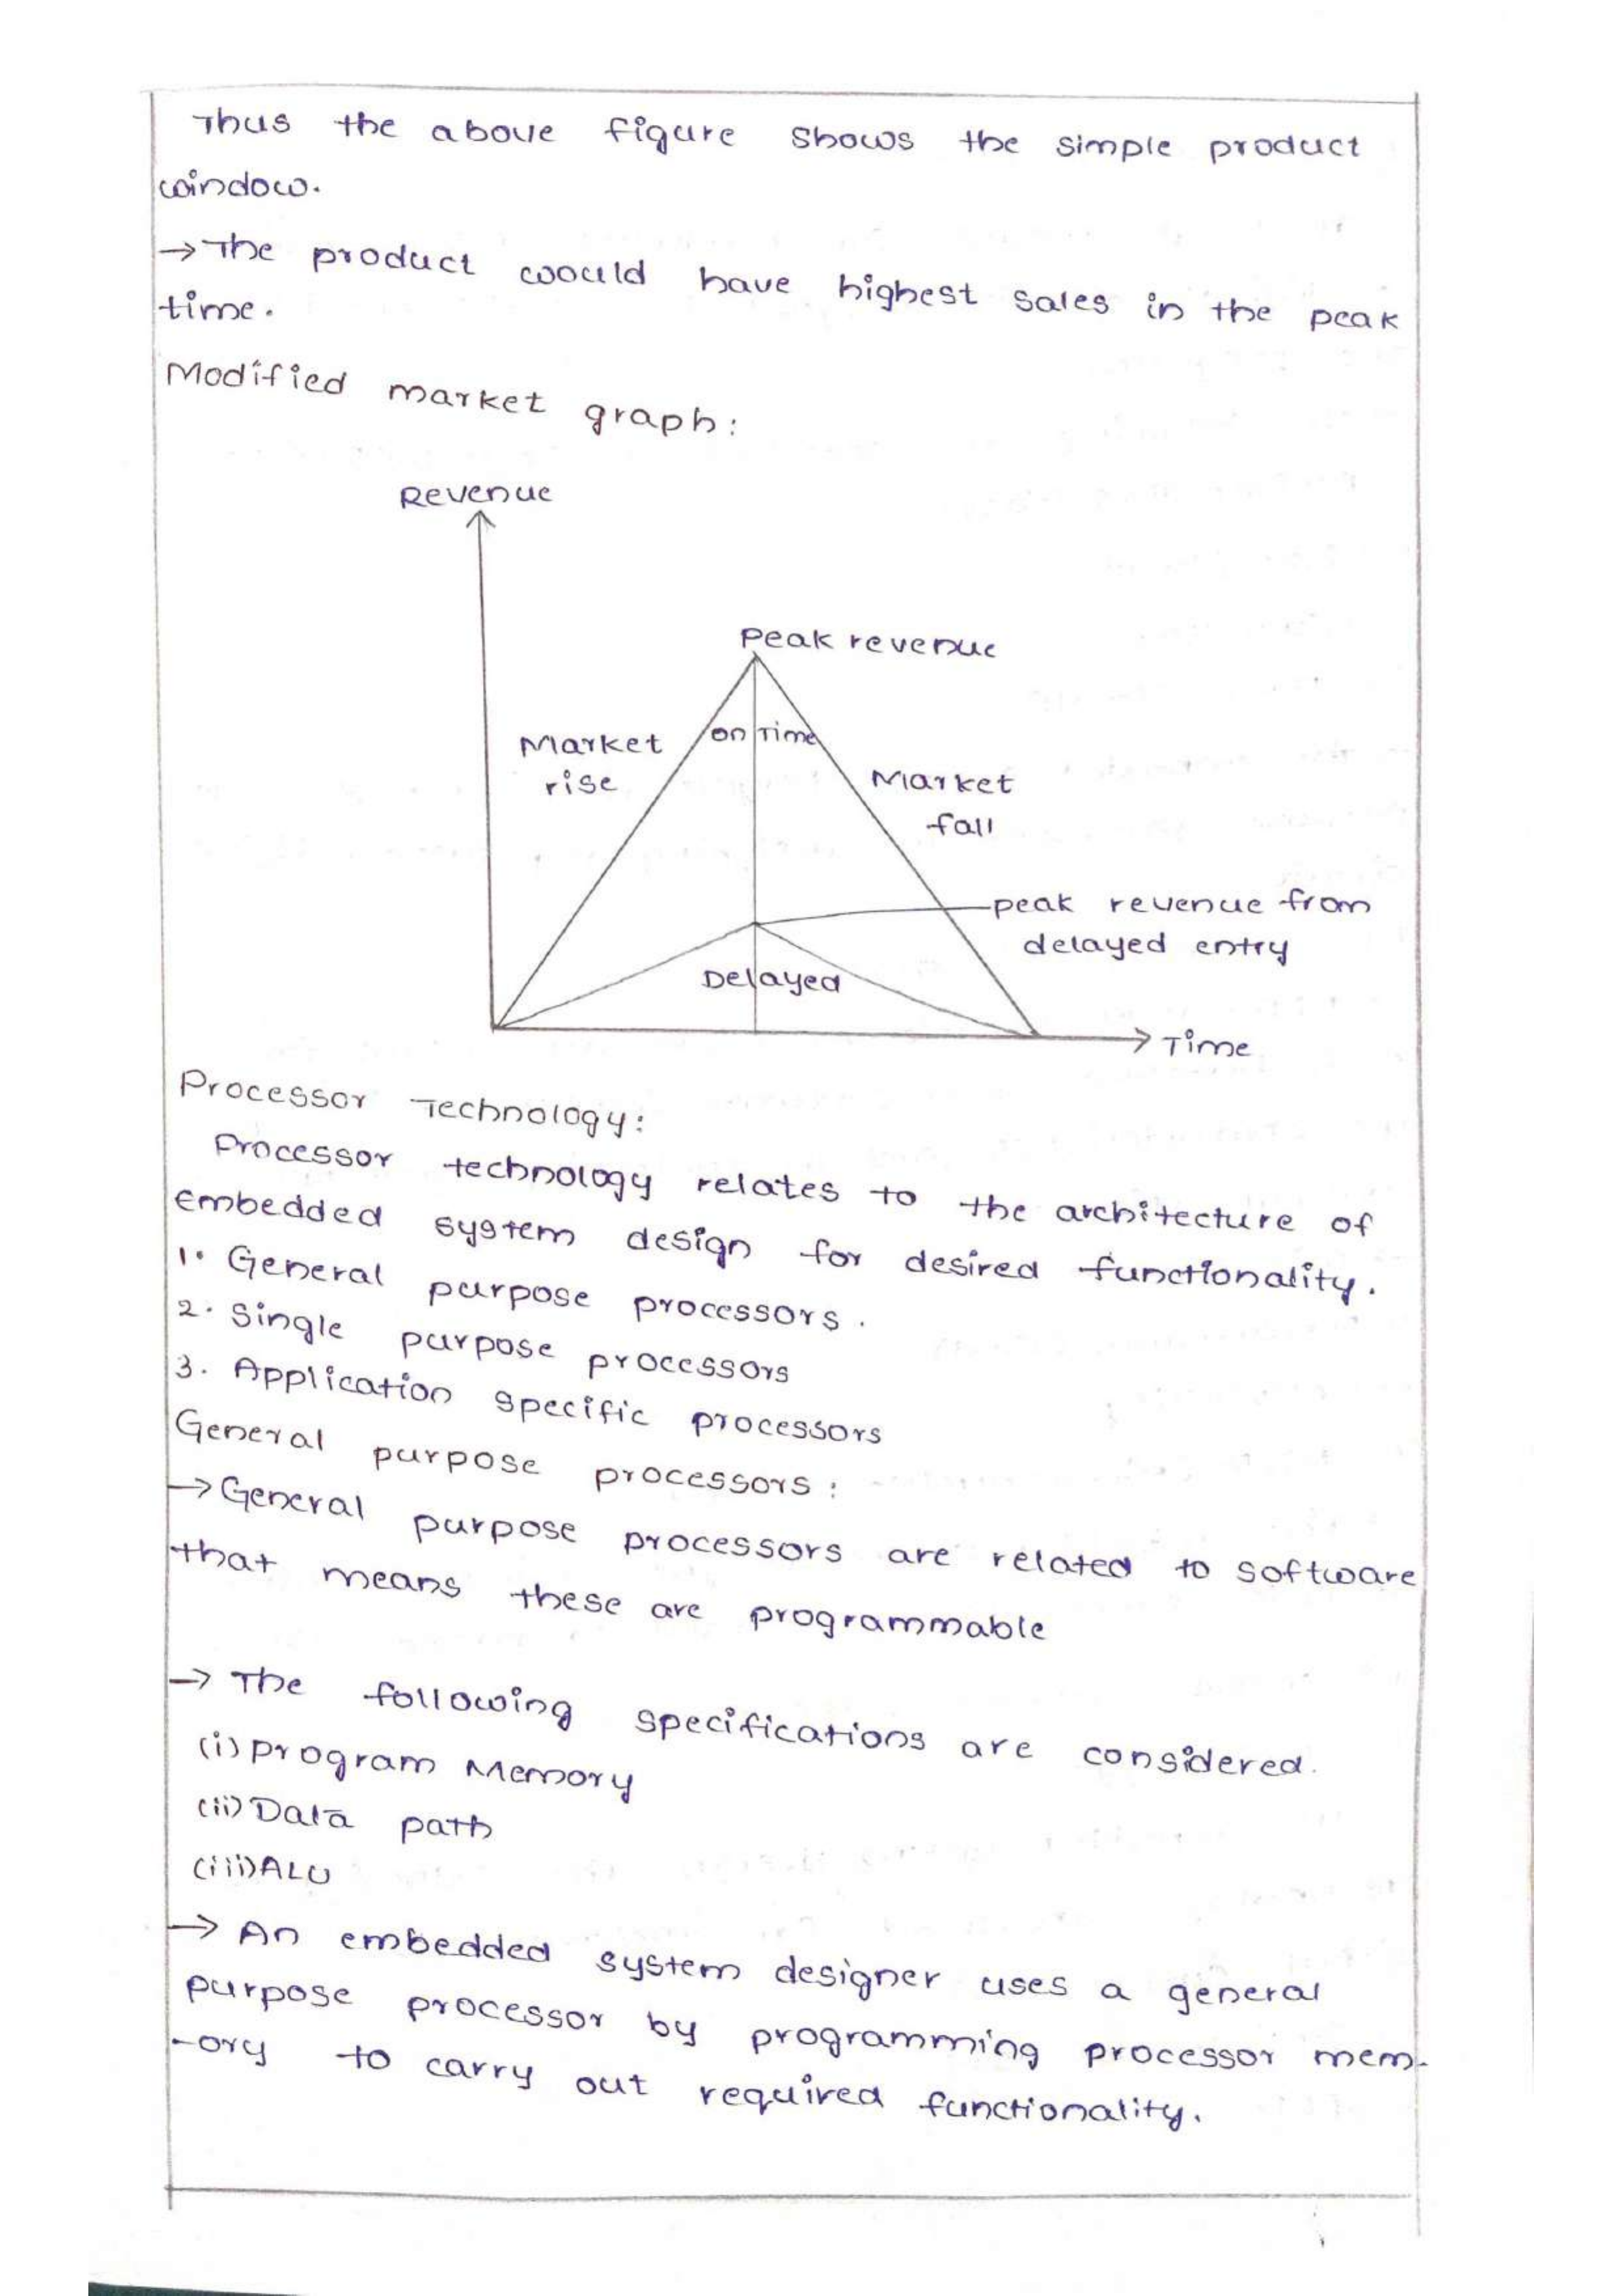 Thus the above figure shows the simple product
window.
→ The product woould have highest sales in the peak
time.
Modified market graph:
Revenue
Peak revenue
on Time
Market
rise
Market
fall
peak revenue from
delayed entry
Delayed
Time
Processor Technology:
Processor technology relates to the architecture of
embedded system design for desired functionality.
1. General purpose processors.
2. Single purpose processors
3. Application specific processors
General purpose processors:
→ General purpose processors are related to software
that means these are programmable
→ The following specifications are considered.
(i) program Memory
(ii) Data path
(iii) ALU
→ An embedded system designer uses a general
purpose processor by programming processor mem-
-ory to carry out required functionality.